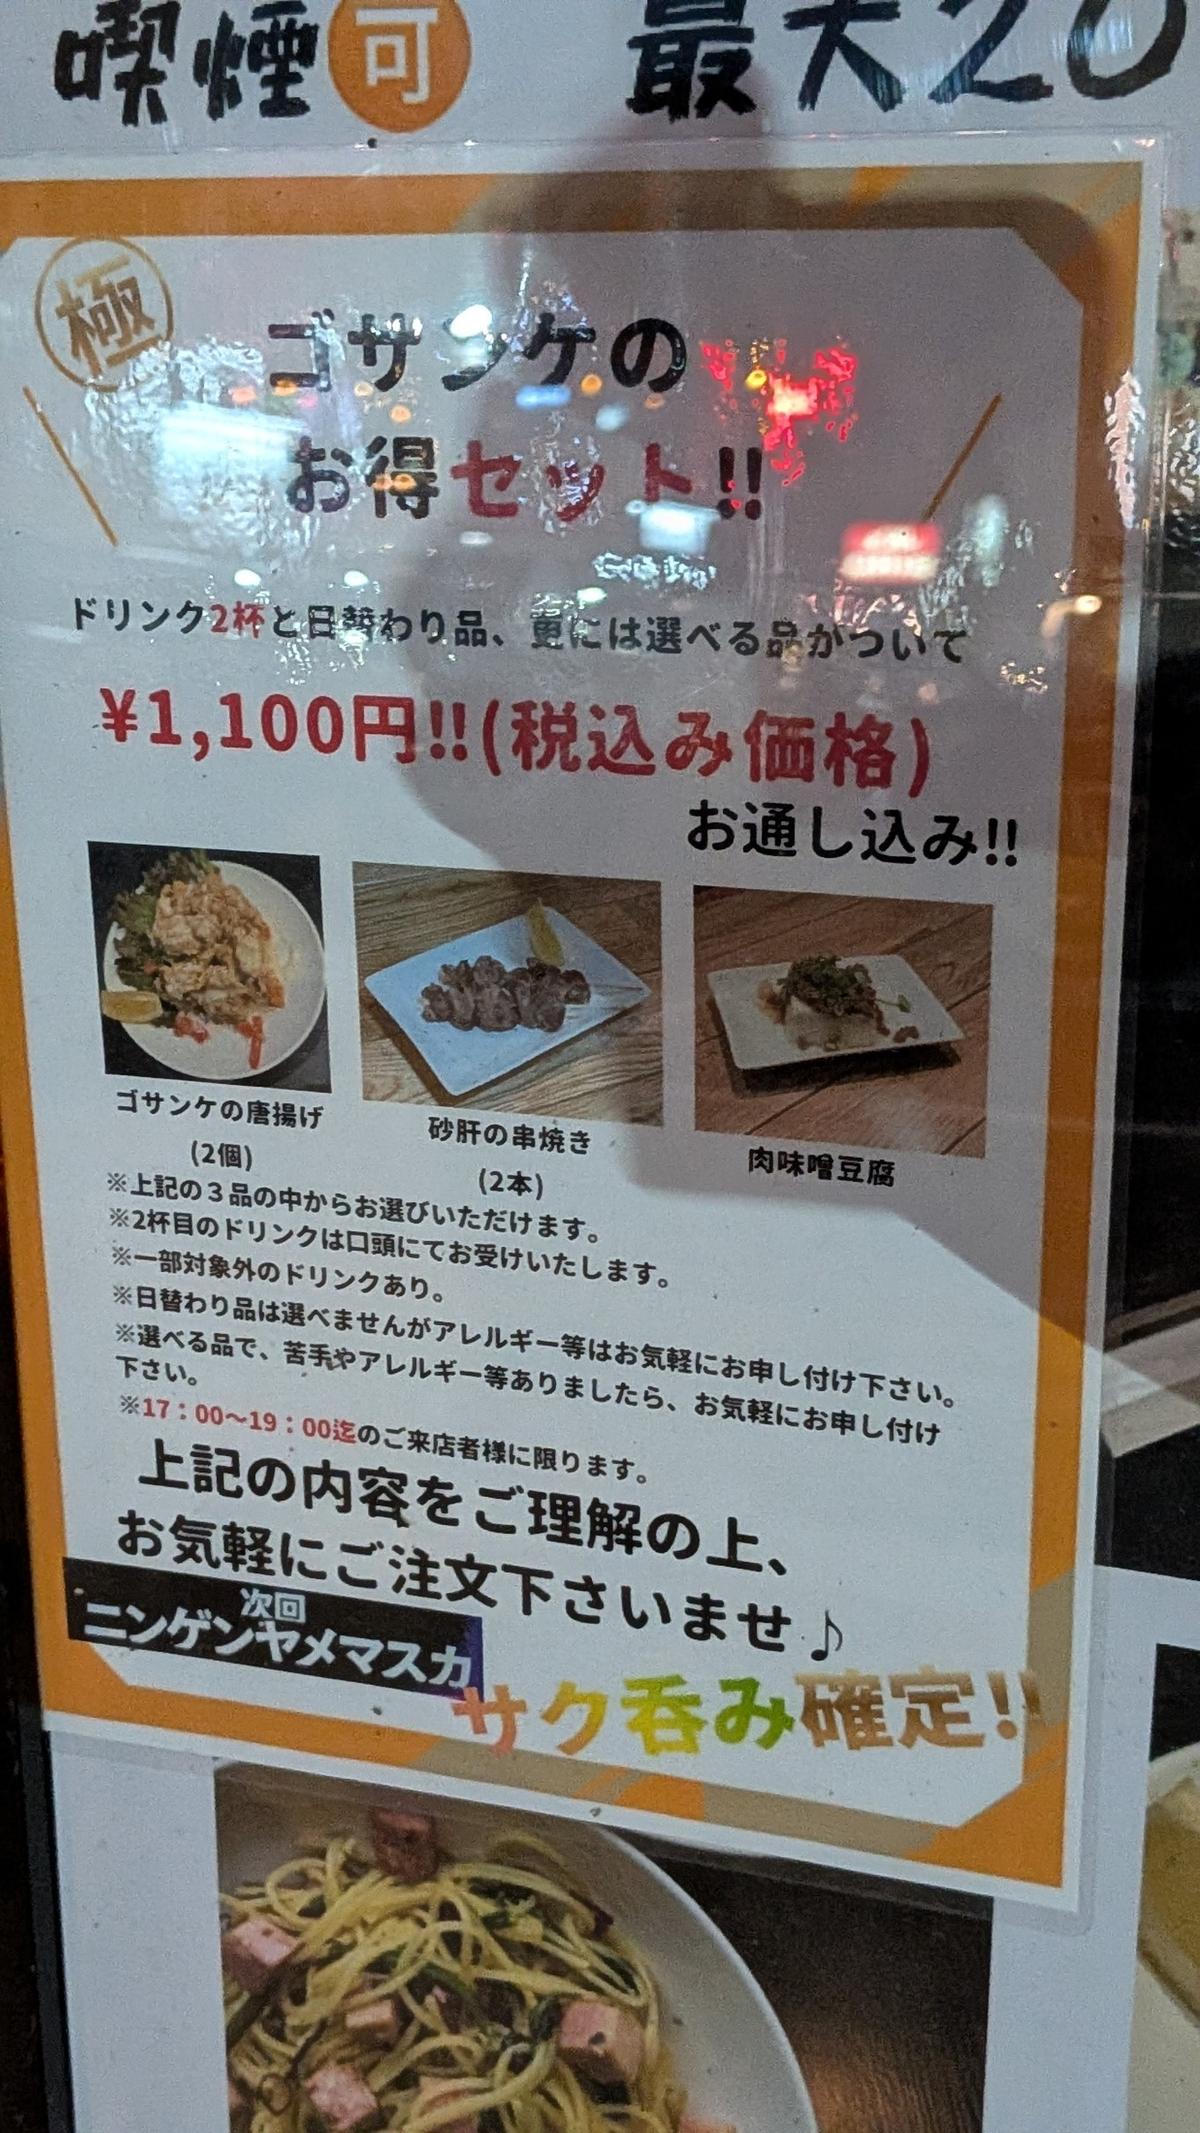 喫煙可 最大20
極
ゴサンケの
お得セット!!
ドリンク2杯と日替わり品、更には選べる品がついて
¥1,100円!!(税込み価格)
お通し込み!!
ゴサンケの唐揚げ
(2個)
砂肝の串焼き
(2本)
肉味噌豆腐
※上記の３品の中からお選びいただけます。
※2杯目のドリンクは口頭にてお受けいたします。
※一部対象外のドリンクあり。
※日替わり品は選べませんがアレルギー等はお気軽にお申し付け下さい。
※選べる品で、苦手やアレルギー等ありましたら、お気軽にお申し付け
下さい。
※17：00～19：00迄のご来店者様に限ります。
上記の内容をご理解の上、
お気軽にご注文下さいませ♪
次回
ニンゲンヤメマスカ
サク呑み確定!!